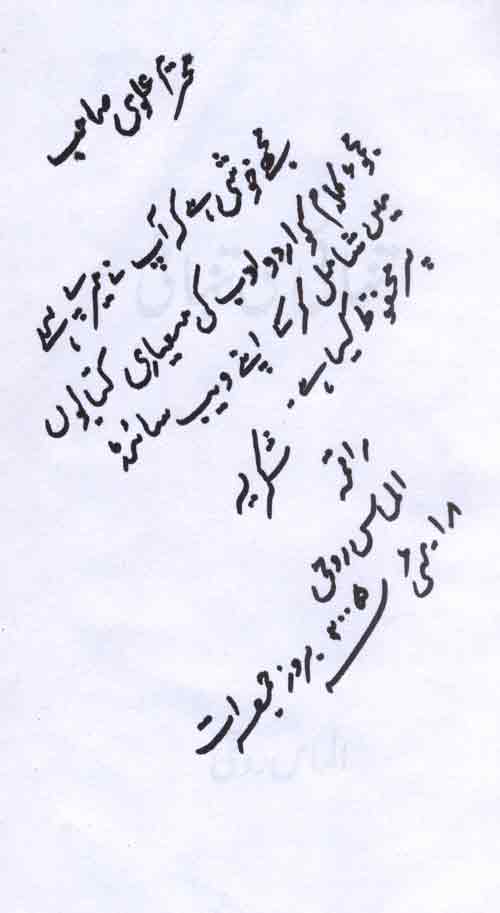 محترم علوی صاحب
مجھے خوشی ہے کہ آپ نے میرے پہلے
مجموعۂ کلام کو اردو ادب کی معیاری کتابوں
میں شامل کرکے اپنے ویب سائٹ
پر محفوظ کیا ہے۔
شکریہ
راقمہ
الماس روحی
۱۸ مئی
۲۰۰۵ بروز جمعرات
الماس روحی